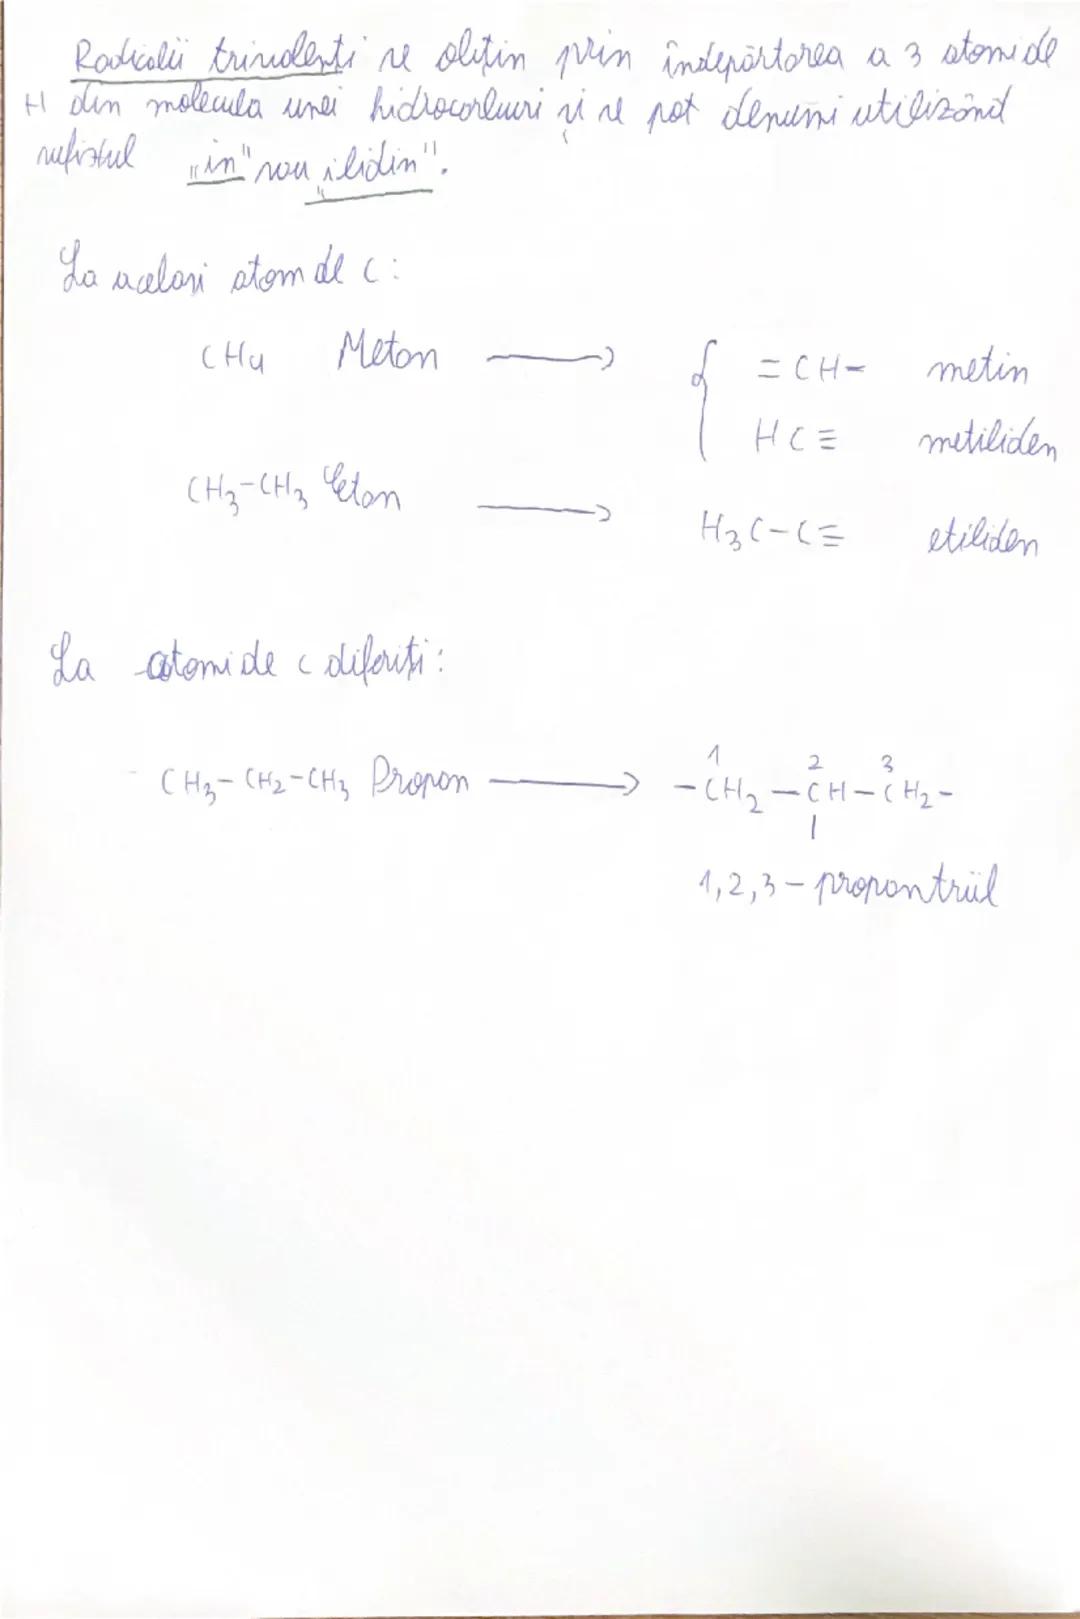 Radicalii trivalenți se obțin prin îndepărtarea a 3 atomi de
H din molecula unei hidrocarburi și se pot denumi utilizând
sufixul „in" sau „ilidin".
La același atom de C:
CH4 Metan → { =CH− metin
HC≡ metiliden
CH3−CH3 Etan → H3C−C≡ etiliden
La atomi de C diferiți:
1 2 3
CH3−CH2−CH3 Propan → −CH2−CH−CH2−
|
1,2,3−propantriil